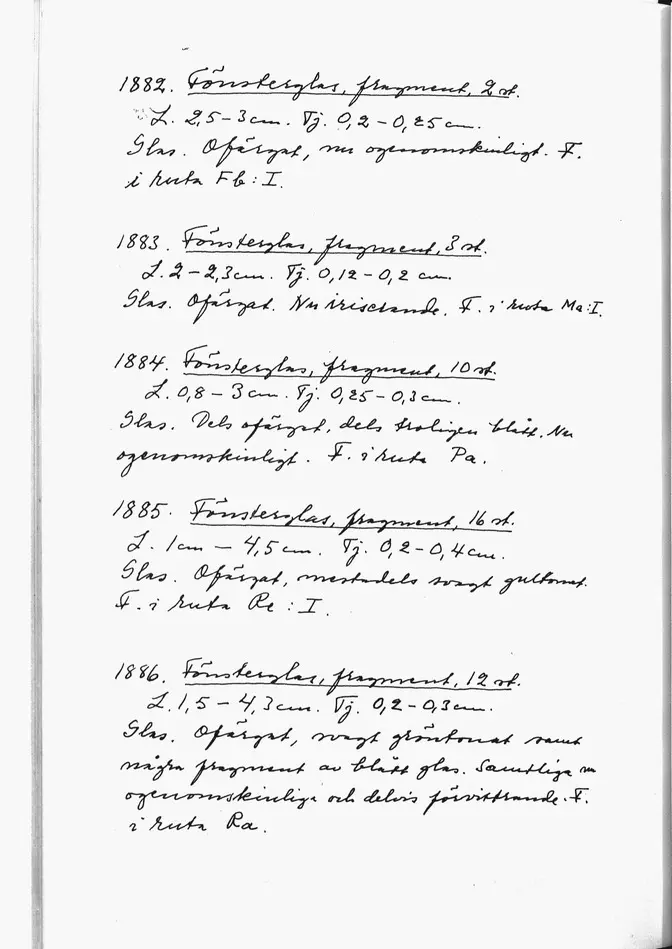 1882. Fönsterglas, fragment, 2 st.
L. 2,5-3 cm. Tj. 0,2-0,25 cm.
Glas. Ofärgat, nu ogenomskinligt. F.
i ruta Fb: I.
1883. Fönsterglas, fragment, 3 st.
L. 2-2,3 cm. Tj. 0,12-0,2 cm.
Glas. Ofärgat. Nu iriserande. F. i ruta Ma: I.
1884. Fönsterglas, fragment, 10 st.
L. 0,8-3 cm. Tj. 0,25-0,3 cm.
Glas. Dels ofärgat, dels troligen blått. Nu
ogenomskinligt. F. i ruta Pa.
1885. Fönsterglas, fragment, 16 st.
L. 1 cm - 4,5 cm. Tj. 0,2-0,4 cm.
Glas. Ofärgat, mestadels svagt gultonat.
F. i ruta Re: I.
1886. Fönsterglas, fragment, 12 st.
L. 1,5-4,3 cm. Tj. 0,2-0,3 cm.
Glas. Ofärgat, svagt gröntonat samt
några fragment av blått glas. Samtliga nu
ogenomskinliga och delvis förvittrande. F.
i ruta Ra.